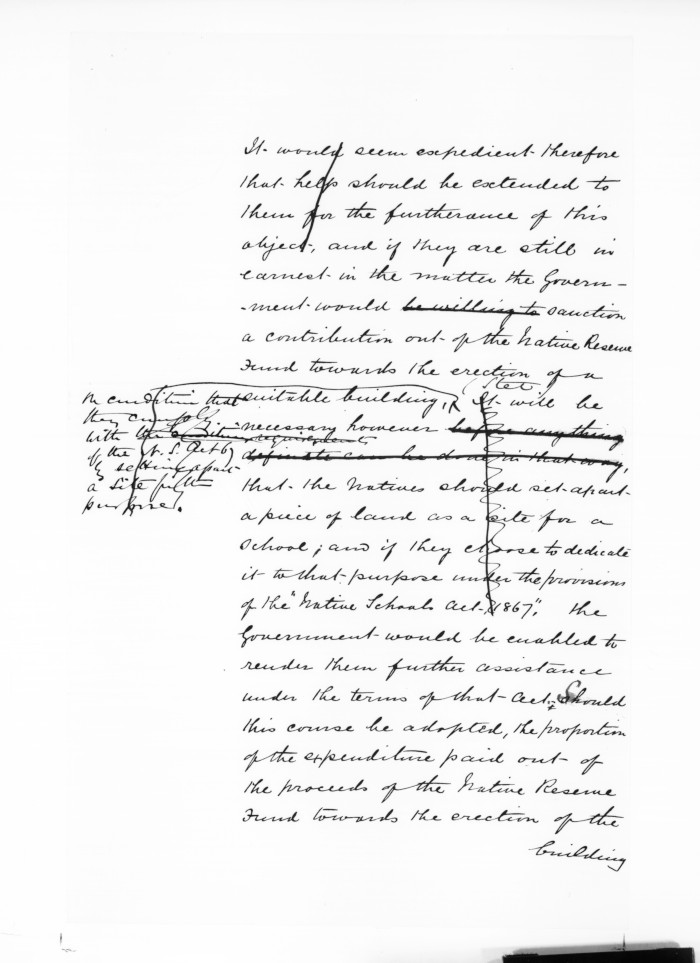 It would seem expedient therefore
that help should be extended to
them for the furtherance of this
object, and if they are still in
earnest in the matter the Govern-
-ment would be willing to sanction
a contribution out of the Native Reserve
Fund towards the erection of a
suitable building, (Stet) It will be
necessary however before anything
definite can be done in that way,
that the Natives should set apart
a piece of land as a site for a
School; and if they choose to dedicate
it to that purpose under the provisions
of the "Native Schools Act, 1867", the
Government would be enabled to
render them further assistance
under the terms of that Act; Should
this course be adopted, the proportion
of the expenditure paid out of
the proceeds of the Native Reserve
Fund towards the erection of the
building
on condition that
they comply
with the requirements
of the N. S. Act 67
by setting apart
a site for the
purpose.